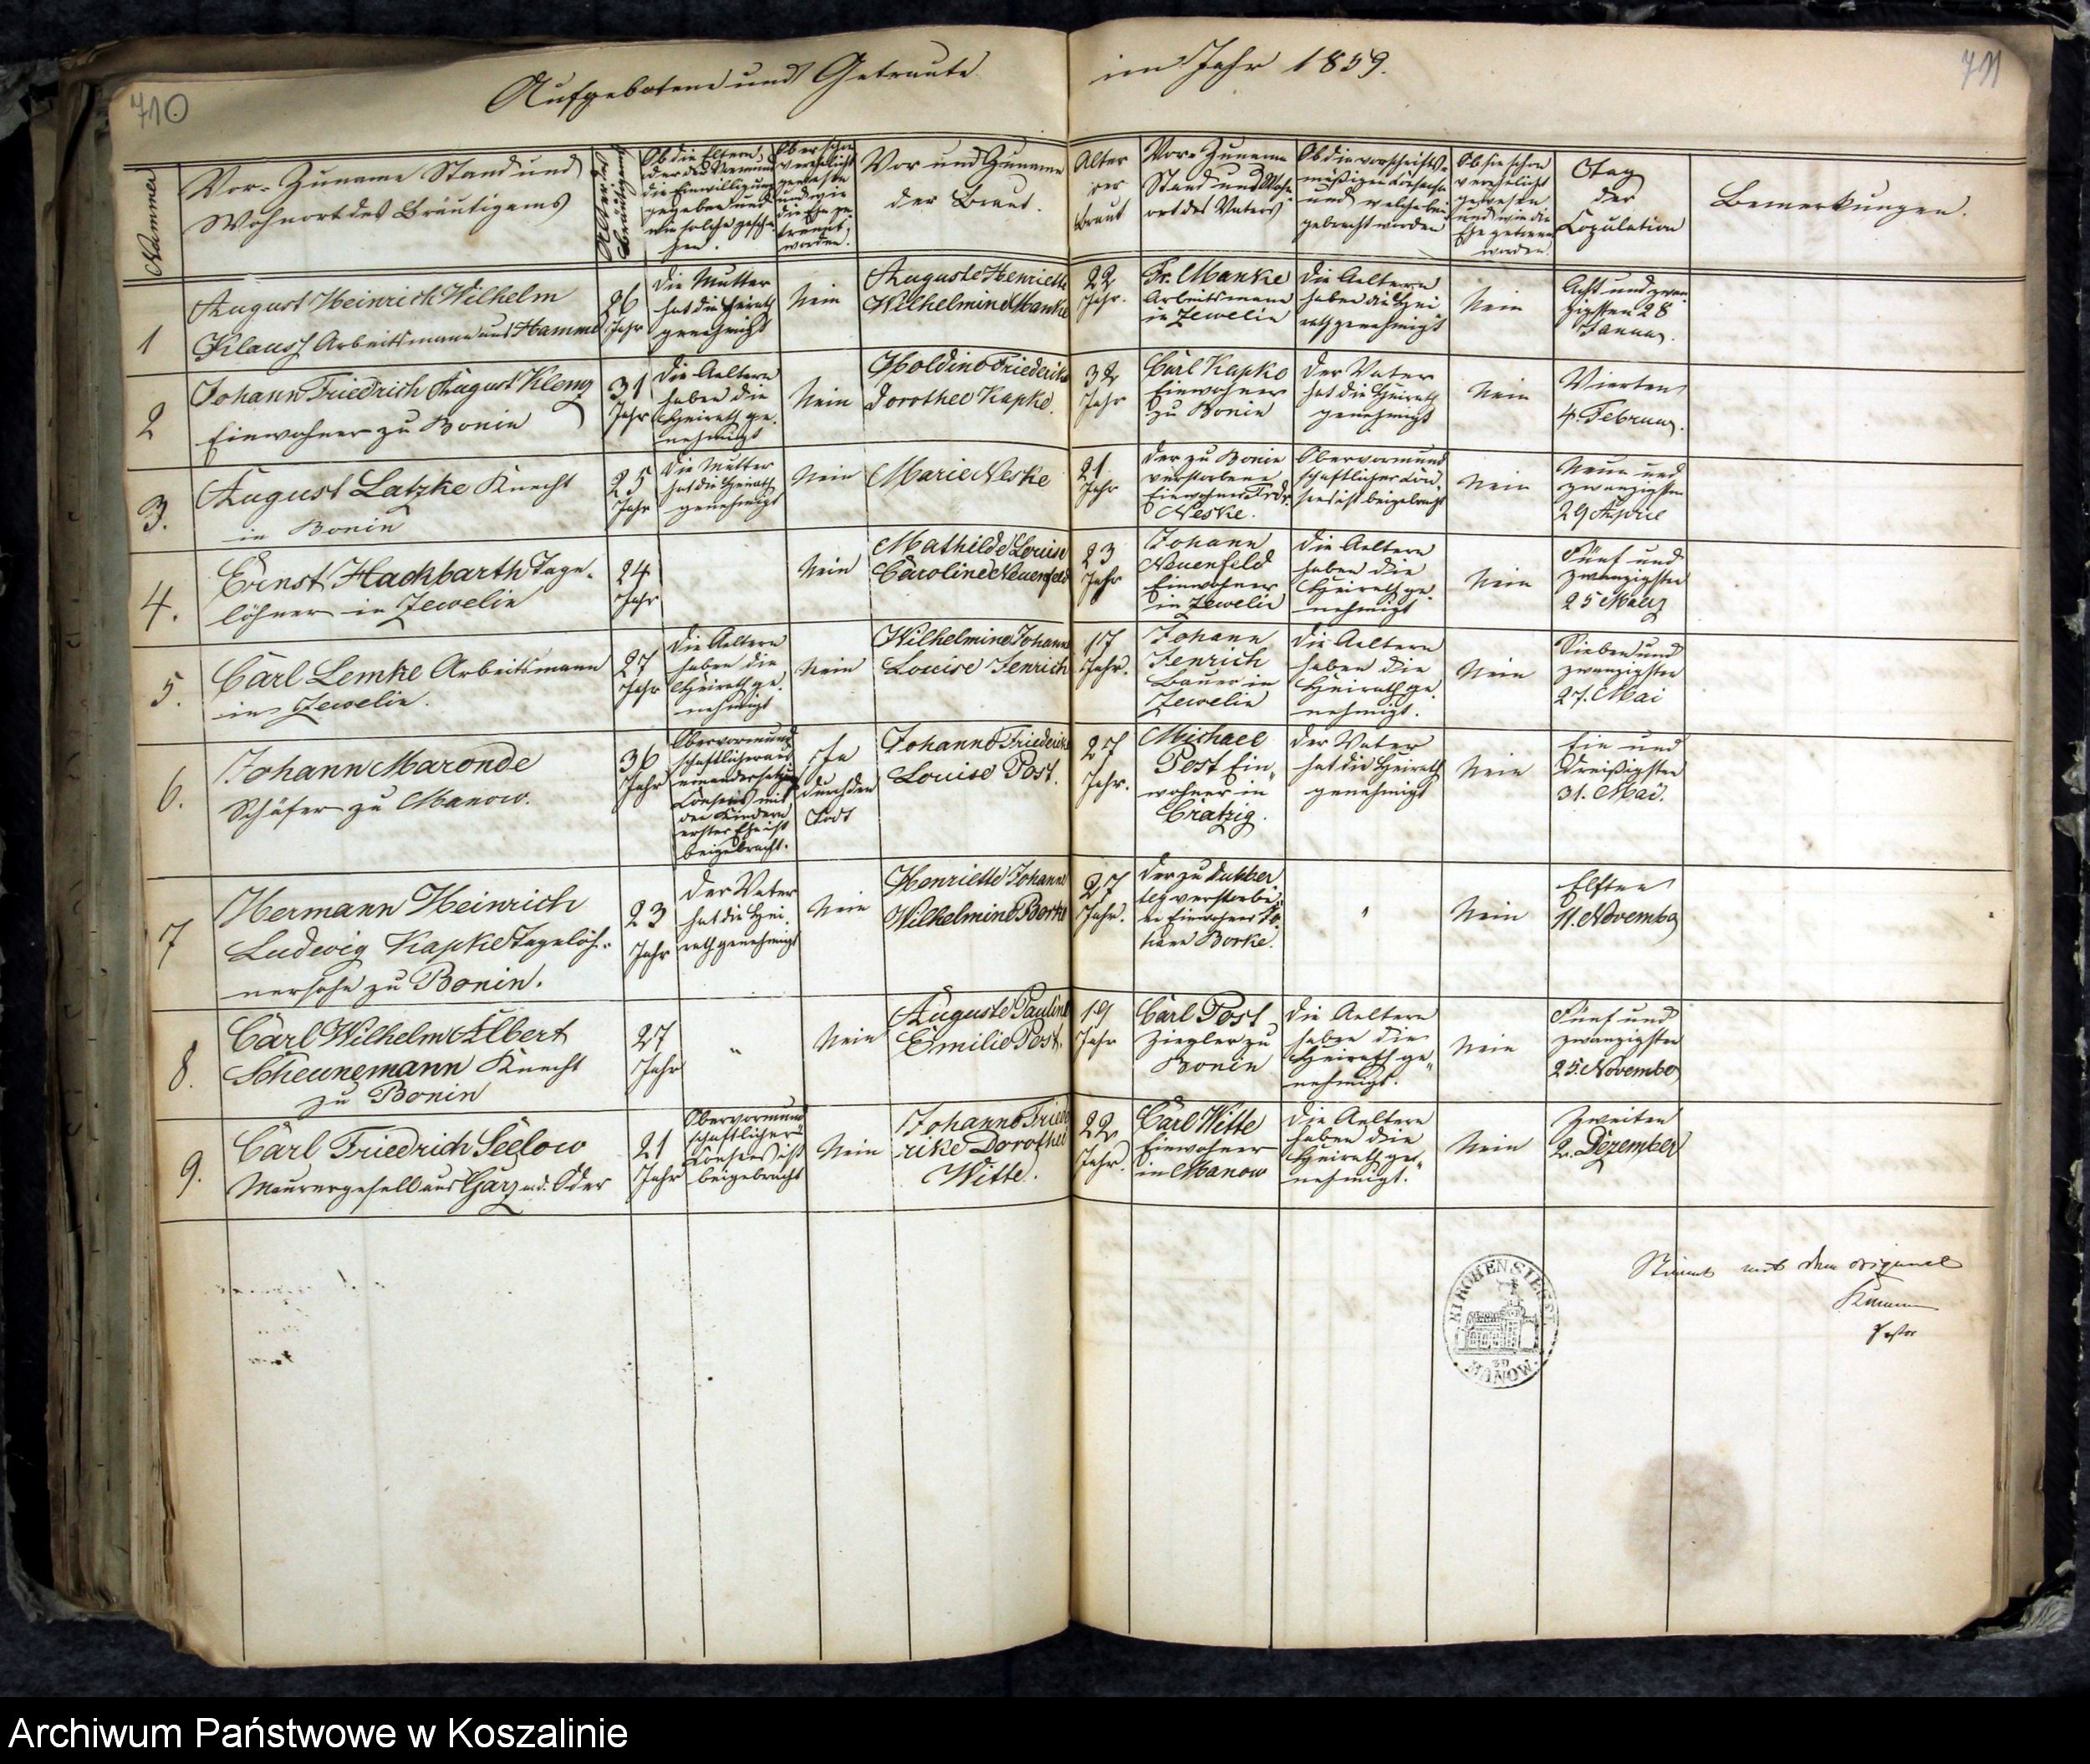 710
Aufgebotene und Getraute
im Jahr 1859.
711
Nummer
Vor- Zuname Stand und
Wohnort des Bräutigams
Alter des
Bräutigams
Ob die Eltern,
oder der Vormund
die Einwilligung
gegeben und
wie solche gesche-
hen.
Ob er schon
verehelicht
gewesen
und wie
die Ehe ge-
trennt
worden.
Vor und Zuname
der Braut.
Alter
der
Braut
Vor- Zuname
Stand und Wohn-
ort des Vaters
Ob die vorschrifts-
mäßigen Consense
und welche bei-
gebracht worden
Ob sie schon
verehelicht
gewesen
und wie die
Ehe getrennt
worden.
Tag
der
Copulation
Bemerkungen.
1
August Heinrich Wilhelm
Klauss Arbeitsmann aus Hamme
26
Jahr
Die Mutter
hat die Heirath
genehmigt
Nein
Auguste Henriette
Wilhelmine Manke
22
Jahr.
Fr. Manke
Arbeitsmann
in Zewelin
Die Aeltern
haben die Hei
rath genehmigt
Nein
Acht und zwan-
zigsten 28
Januar.
2
Johann Friedrich August Klemz
Einwohner zu Bonin
31
Jahr
Die Aeltern
haben die
Heirath ge-
nehmigt
Nein
Holdine Friederike
Dorothee Kapke.
32
Jahr
Carl Kapke
Einwohner
zu Bonin
Der Vater
hat die Heirath
genehmigt
Nein
Vierten
4. Februar.
3.
August Latzke Knecht
in Bonin
25
Jahr
Die Mutter
hat die Heirath
genehmigt
Nein
Marie Neske
21
Jahr
Der zu Bonin
verstorbene
Einwohner Frdr.
Neske.
Obervormund
schaftlicher Con-
sens ist beigebracht
Nein
Neun und
zwanzigsten
29 April
4.
Ernst Hackbarth Tage-
löhner in Zewelin
24
Jahr
Nein
Mathilde Louise
Caroline Neuenfeld
23
Jahr
Johann
Neuenfeld
Einwohner
in Zewelin
Die Aeltern
haben die
Heirath ge-
nehmigt
Nein
Fünf und
zwanzigsten
25 März
5.
Carl Lemke Arbeitsmann
in Zewelin.
27
Jahr
Die Aeltern
haben die
Heirath ge-
nehmigt
Nein
Wilhelmine Johanne
Louise Jenrich
17
Jahr.
Johann
Jenrich
Bauer in
Zewelin
Die Aeltern
haben die
Heirath ge-
nehmigt.
Nein
Sieben und
zwanzigsten
27. Mai
6.
Johann Maronde
Schäfer zu Manow.
36
Jahr
Obervormund
schaftlicher aus
einandersetzungs
Consens mit
den Kindern
erster Ehe ist
beigebracht.
Ja
durch den
Tod
Johanne Friederike
Louise Post.
27
Jahr.
Michael
Post Ein-
wohner in
Cratzig.
Der Vater
hat die Heirath
genehmigt
Nein
Ein und
dreißigsten
31. Mai.
7
Hermann Heinrich
Ludwig Kapke Tagelöh-
nersohn zu Bonin.
23
Jahr
Der Vater
hat die Hei-
rath genehmigt
Nein
Henriette Johanne
Wilhelmine Borke
27
Jahr.
Der zu Dubber
teg verstorbe-
ne Einwohner Jo-
hann Borke.
"
Nein
Elften
11. November
8.
Carl Wilhelm Albert
Scheunemann Knecht
zu Bonin
27
Jahr
"
Nein
Auguste Pauline
Emilie Post.
19
Jahr
Carl Post
Ziegler zu
Bonin
Die Aeltern
haben die
Heirath ge-
nehmigt.
Nein
Fünf und
zwanzigsten
25. November
9.
Carl Friedrich Seelow
Maurergesell aus Garz a.d. Oder
21
Jahr
Obervormund
schaftlicher
Consens ist
beigebracht
Nein
Johanne Friede
rike Dorothee
Witte.
22
Jahr.
Carl Witte
Einwohner
in Manow
Die Aeltern
haben die
Heirath ge-
nehmigt.
Nein
Zweiten
2. Dezember
KIRCHEN SIEGEL
ZU
MANOW.
Stimmt mit dem Original
Pastor
Archiwum Państwowe w Koszalinie